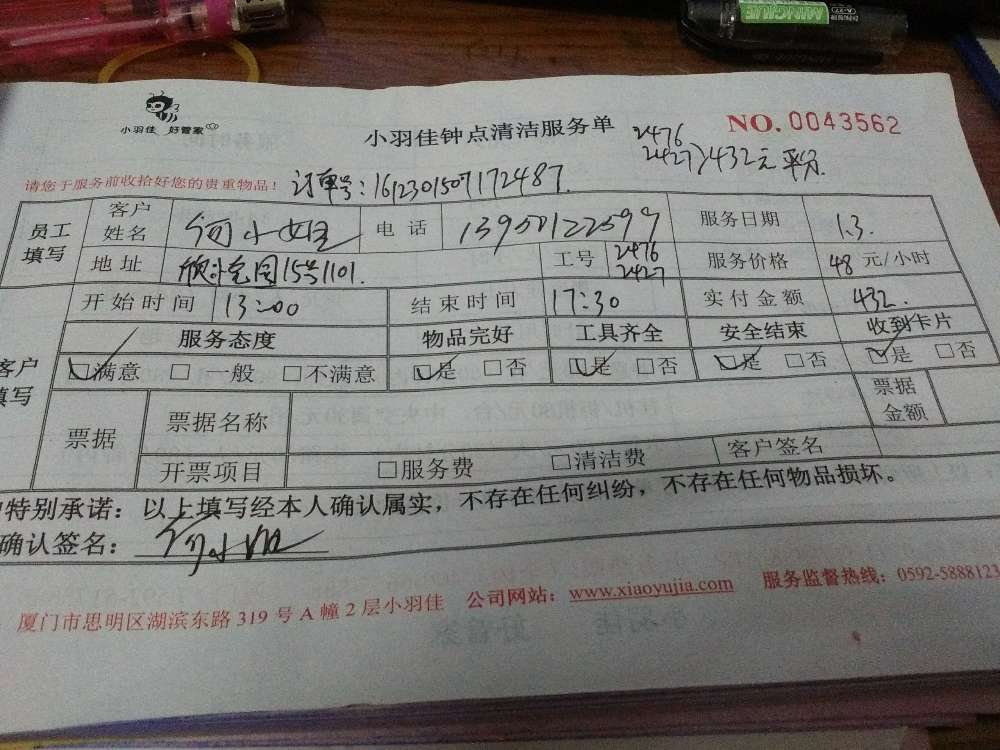 小羽佳 好管家
小羽佳钟点清洁服务单
NO. 0043562
2476
2427 》432元 平分
请您于服务前收拾好您的贵重物品！ 订单号：161230150717 2487.
员工填写 客户姓名 何小姐 电话 服务日期 1.3.
地址 15号1101. 工号 2476 2427 服务价格 48 元/小时
开始时间 13:00 结束时间 17:30 实付金额 432.
客户填写 服务态度 物品完好 工具齐全 安全结束 收到卡片
☑满意 □一般 □不满意 ☑是 □否 ☑是 □否 ☑是 □否 ☑是 □否
票据 票据名称 票据金额
开票项目 □服务费 □清洁费 客户签名
特别承诺：以上填写经本人确认属实，不存在任何纠纷，不存在任何物品损坏。
确认签名： 何小姐
厦门市思明区湖滨东路 319 号 A 幢 2 层小羽佳 公司网站：www.xiaoyujia.com 服务监督热线：0592-5888123
MINGLE